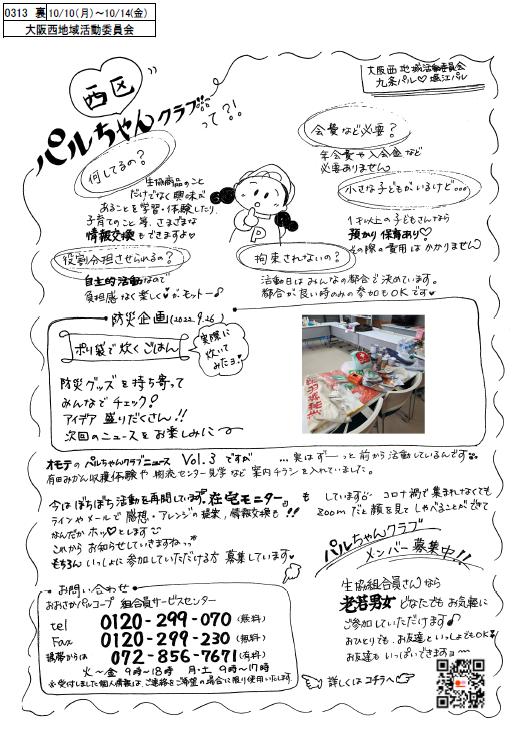 0313 裏 10/10(月)～10/14(金)
大阪西地域活動委員会
大阪西地域活動委員会
九条パル♡堀江パル
西区
パルちゃんクラブ
って?!
何してるの？
生協商品のこと
だけでなく興味が
あることを学習・体験したり、
子育てのこと等、さまざまな
情報交換もできますよ♥
会費など必要？
年会費や入会金など
必要ありません
小さな子どもがいるけど…
1才以上の子どもさんなら
預かり保育あり♡
その際の費用はかかりません
役割分担させられるの？
自主的活動なので
負担感なく楽しく♥がモットー♪
拘束されないの？
活動日はみんなの都合で決めています。
都合が良い時のみの参加もOKです♥
P
防災企画(2022.9.26)
ポリ袋で炊くごはん
実際に
炊いて
みたョ!
防災グッズを持ち寄って
みんなでチェック!
アイデア盛りだくさん!!
次回のニュースをお楽しみに～
オモテのパルちゃんクラブニュース Vol.3ですが …実はずーっと前から活動しているんです
有田みかん収穫体験や物流センター見学など案内チラシを入れていました。
今はぼちぼち活動を再開しています。在宅モニターもしています
ラインやメールで感想・アレンジの提案、情報交換も!!
なんだかホッ♡とします
これからお知らせしていきますね
もちろんいっしょに参加していただける方募集しています♥
コロナ禍で集まれなくても
zoomだと顔を見てしゃべることができて
パルちゃんクラブ
メンバー募集中!!
生協組合員さんなら
老若男女どなたでもお気軽に
ご参加していただけます♪
おひとりでも、お友達といっしょでもOK
お友達もいっぱいできますョ～
詳しくはコチラへ
お問い合わせ
おおさかパルコープ 組合員サービスセンター
tel 0120-299-070(無料)
Fax 0120-299-230(無料)
携帯からは 072-856-7671(有料)
火～金 9時～18時 月・土 9時～17時
※受付しました個人情報は、ご連絡をご希望の場合に限り使用いたします。